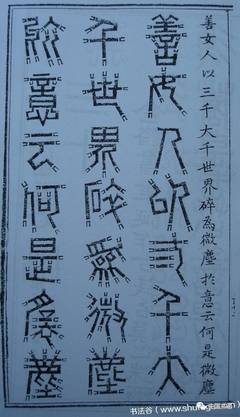 善女人以三千大千世界碎為微塵於意云何是微塵
善女人以三千大
千世界碎為微塵
於意云何是微塵
书法谷（www.shu